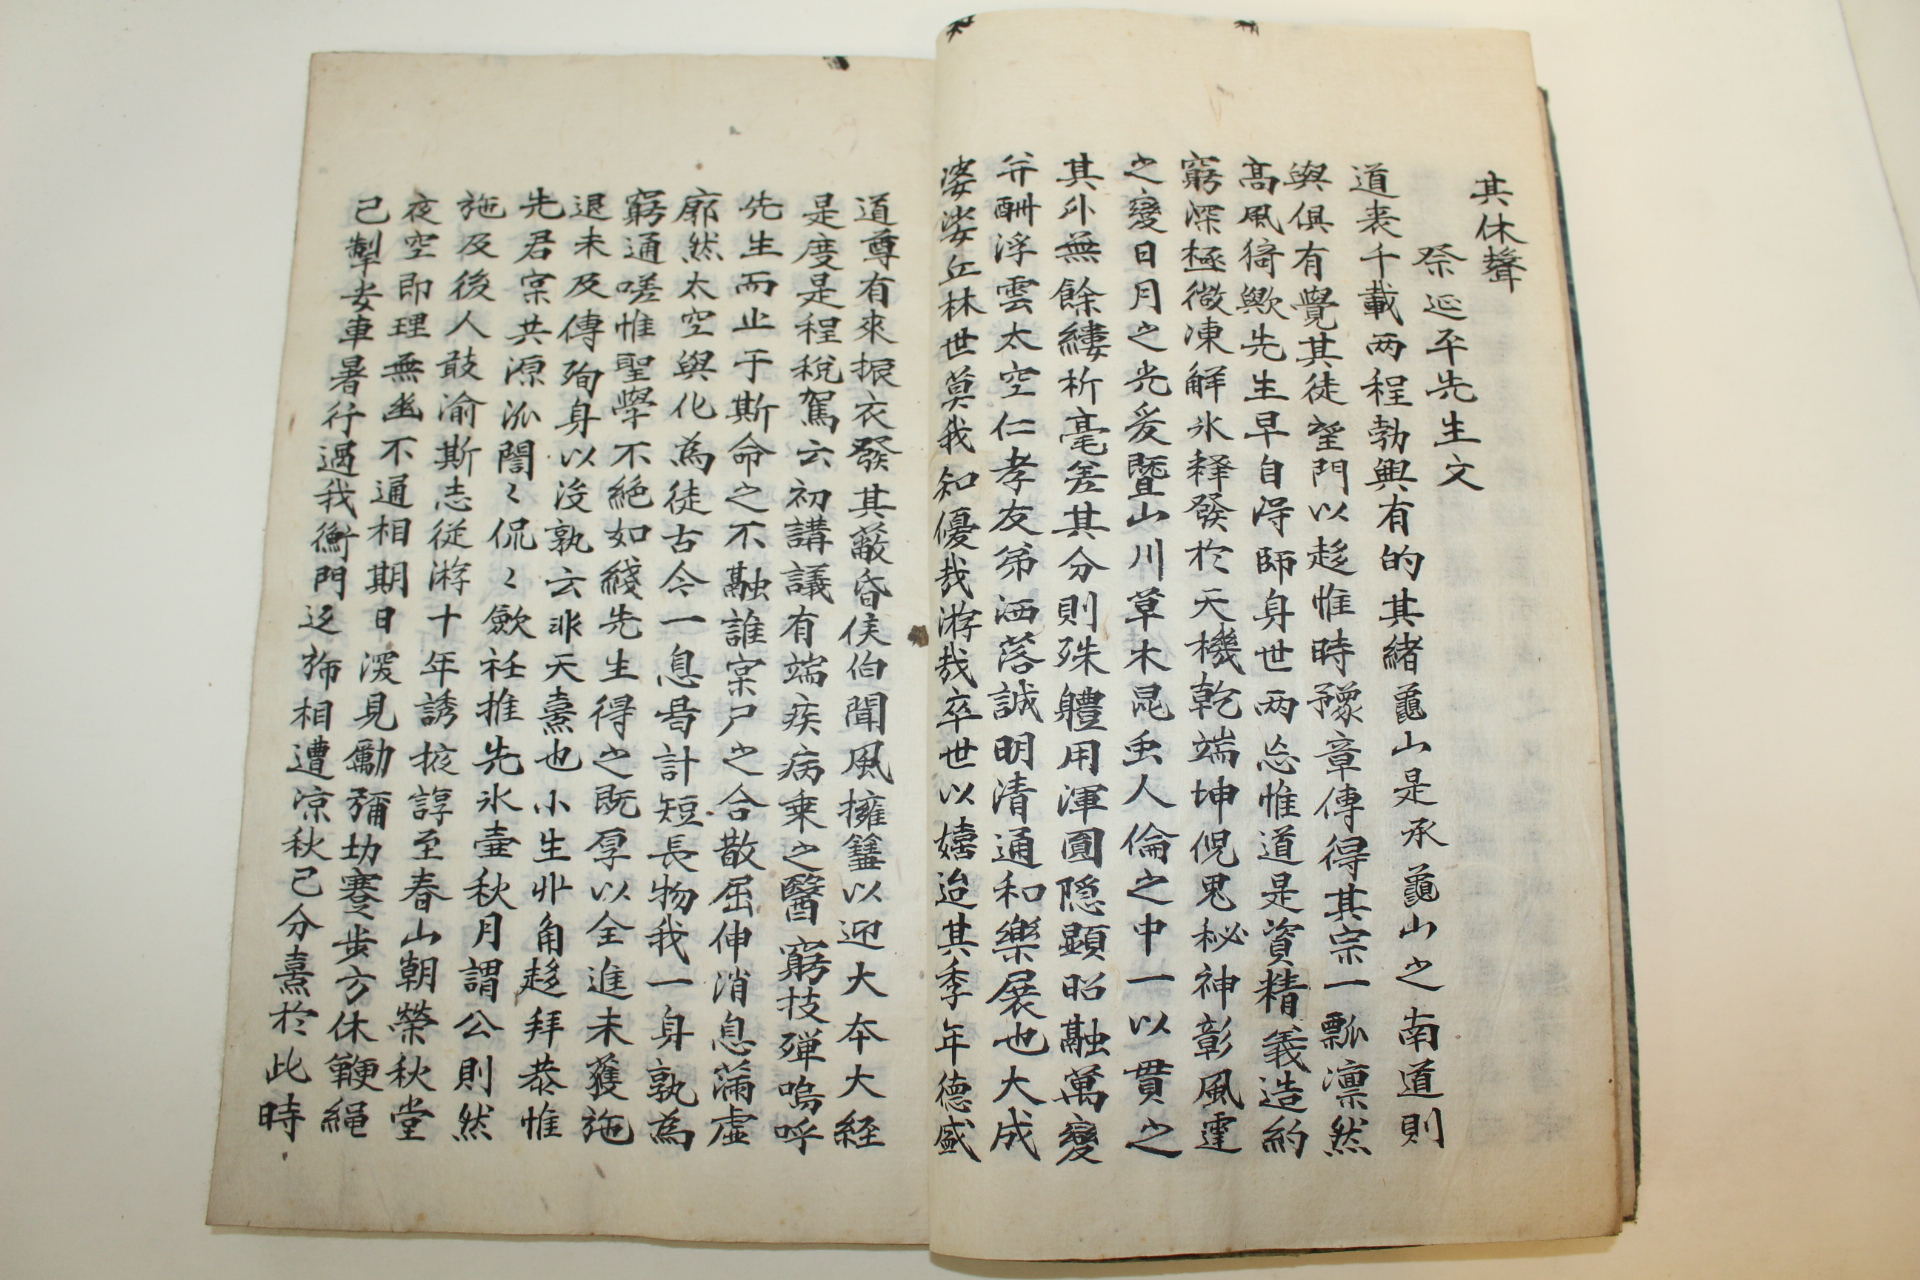 其休聲
祭延平先生文
道丧千載两程勃興有的其緒龜山是承龜山之南道則
與俱有覺其徒望門以趍惟時豫章傳得其宗一瓢凛然
高風猗歟先生早自得師身世两忘惟道是資精義造約
窮深極微凍解氷釋發於天機乾端坤倪鬼秘神彰風霆
之變日月之光爰曁山川草木昆虫人倫之中一以貫之
其外無餘縷析毫差其分則殊軆用渾圓隠顕昭融萬變
并酬浮雲太空仁孝友弟洒落誠明清通和樂展也大成
婆娑丘林世莫我知優哉游哉卒世以嬉迨其季年德盛
道尊有來振衣發其蔽昏侯伯聞風擁篲以迎大本大経
是度是程税駕云初講議有端疾病乗之醫窮技殫嗚呼
先生而止于斯命之不融誰宲尸之合散屈伸消息滿虚
廓然太空與化為徒古今一息曷計短長物我一身孰為
窮通嗟惟聖學不絶如綫先生得之既厚以全進未獲施
退未及傳殉身以没孰云非天熹也小生丱角趍拜恭惟
先君宲共源派誾〻侃〻歛衽推先氷壷秋月謂公則然
施及後人敢渝斯志従游十年誘掖諄至春山朝榮秋堂
夜空即理無幽不通相期日深見勵彌切蹇步方休鞭繩
己掣安車暑行過我衡門返斾相遭凉秋己分熹於此時